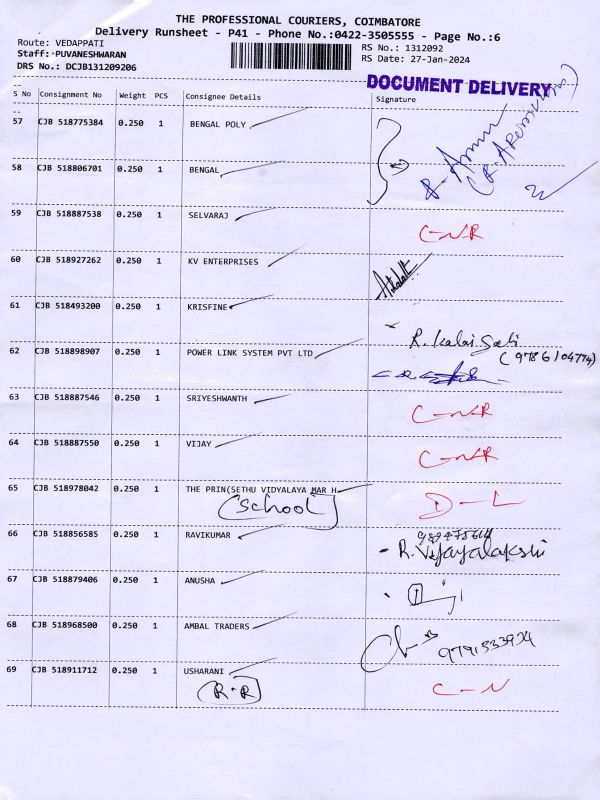 THE PROFESSIONAL COURIERS, COIMBATORE
Delivery Runsheet - P41 - Phone No.:0422-3505555 - Page No.:6
Route: VEDAPPATI RS No.: 1312092
Staff: PUVANESHWARAN RS Date: 27-Jan-2024
DRS No.: DCJB131209206
DOCUMENT DELIVERY
S No Consignment No Weight PCS Consignee Details Signature
57 CJB 518775384 0.250 1 BENGAL POLY
58 CJB 518806701 0.250 1 BENGAL
59 CJB 518887538 0.250 1 SELVARAJ C-NR
60 CJB 518927262 0.250 1 KV ENTERPRISES
61 CJB 518493200 0.250 1 KRISFINE
62 CJB 518898907 0.250 1 POWER LINK SYSTEM PVT LTD R. Kalai
(9786104774)
63 CJB 518887546 0.250 1 SRIYESHWANTH C-NR
64 CJB 518887550 0.250 1 VIJAY C-NR
65 CJB 518978042 0.250 1 THE PRIN(SETHU VIDYALAYA MAR H D-L
(School)
66 CJB 518856585 0.250 1 RAVIKUMAR
- R. Vejayalakshi
67 CJB 518879406 0.250 1 ANUSHA
68 CJB 518968500 0.250 1 AMBAL TRADERS
69 CJB 518911712 0.250 1 USHARANI C-N
(R-R)